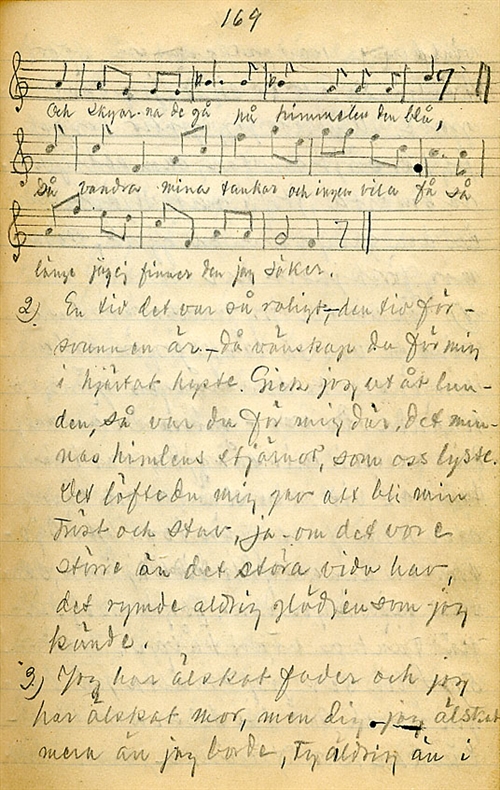 169
Och skyar-na de gå på himmelen den blå,
Så vandra mina tankar och ingen vila få så
länge jag ej finner den jag söker.
2) En tid det var så roligt, den tid för-
svunnen är - då vänskap du för mig
i hjärtat hyste. Gick jag ut åt lun-
den, så var du för mig där, det min-
nas himlens stjärnor, som oss lyste.
Det löfte du mig gav att bli min
tröst och stav, ja - om det vore
större än det stora vida hav,
det rymde aldrig glädjen som jag
kände.
3) Jag har älskat fader och jag
har älskat mor, men dig jag älskat
mera än jag borde, ty aldrig än i